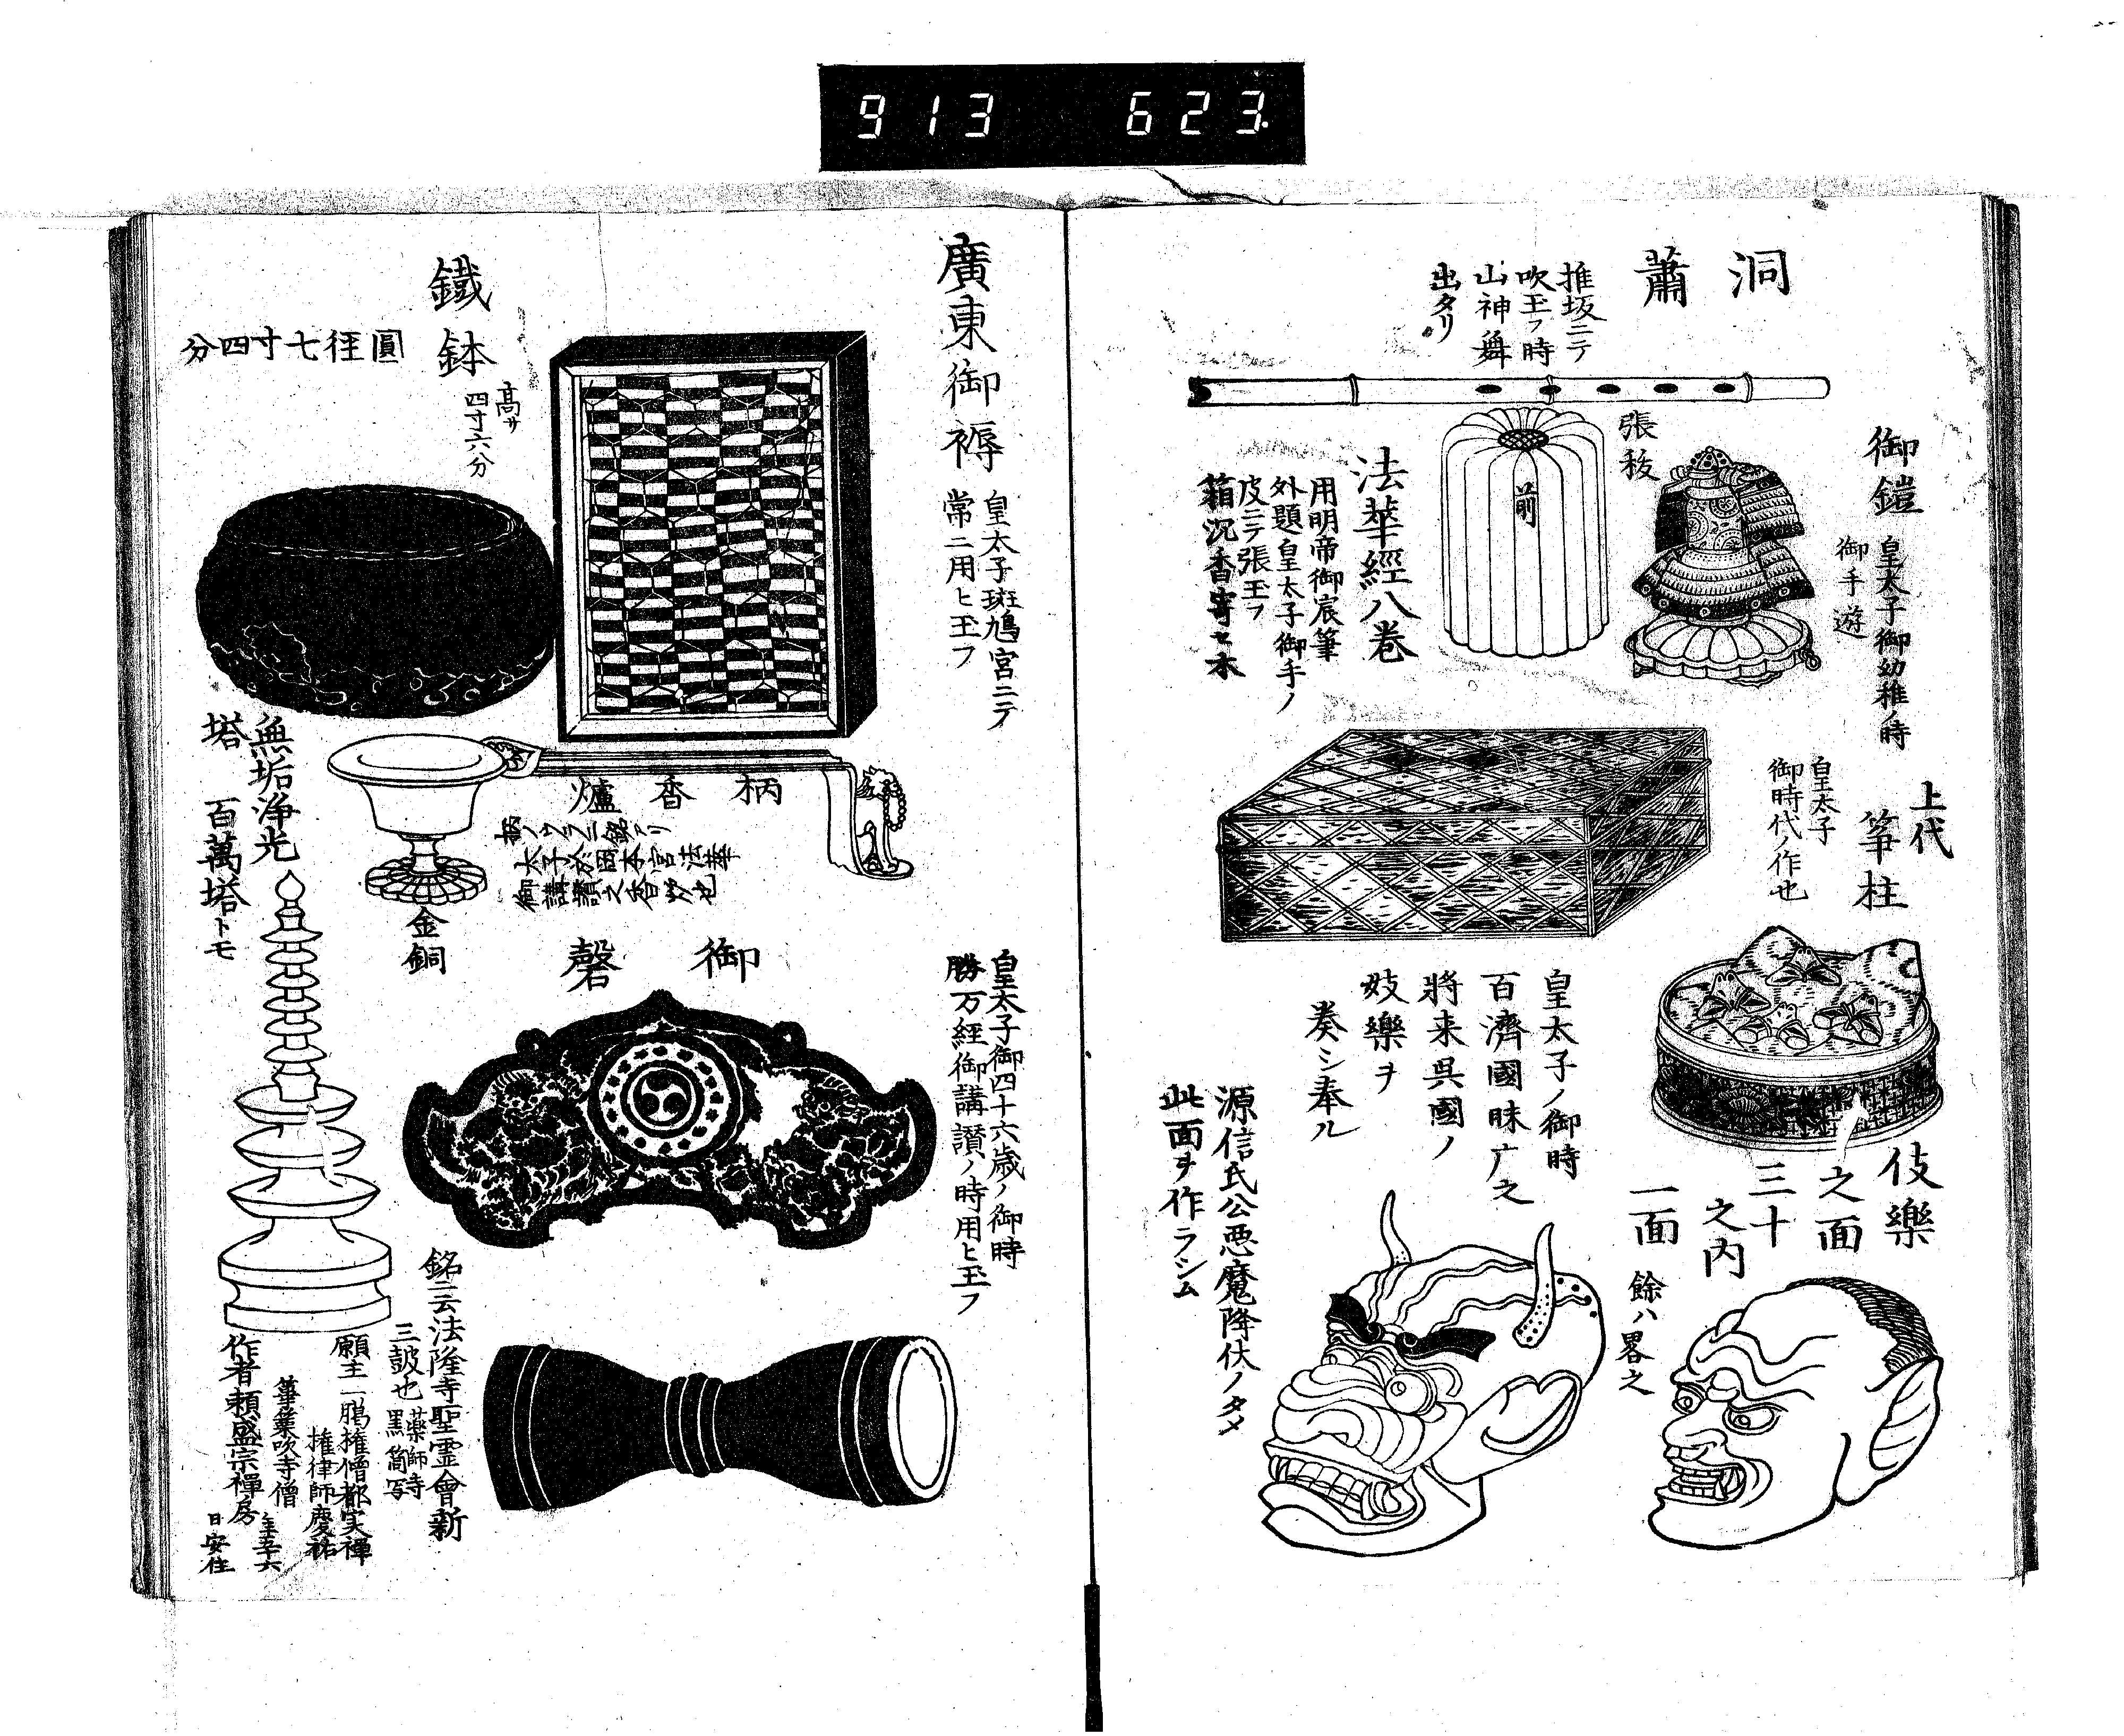 913 623.
洞簫
推坂ニテ
吹玉フ時
山神舞
出タリ
御鎧
皇太子御幼稚ノ時
御手遊
張
前
法華經八巻
用明帝御宸筆
外題皇太子御手ノ
皮ニテ張玉フ
箱沉香寄セ木
上代
箏柱
皇太子
御時代ノ作也
伎樂
之面
三十
之内
二面
餘ハ畧之
皇太子ノ御時
百濟國味广之
將来呉國ノ
妓樂ヲ
奏シ奉ル
源信氏公悪魔降伏ノタメ
此面ヲ作ラシム
廣東御褥
皇太子斑鳩宮ニテ
常ニ用ヒ玉フ
鐵鉢
高サ
四寸六分
圓徑七寸四分
柄香爐
柄ノウラニ銘アリ
太子於岡本宮法華
御講讚之香炉也
金銅
無垢浄光
塔
百萬塔トモ
御磬
皇太子御四十六歳ノ御時
勝万經御講讃ノ時用ヒ玉フ
銘ニ云法隆寺聖霊會新
三鼓也
藥師寺
黒筒写
願主一﨟權僧都実禅
權律師慶祐
篳篥吹寺僧
作者頼盛宗禅房